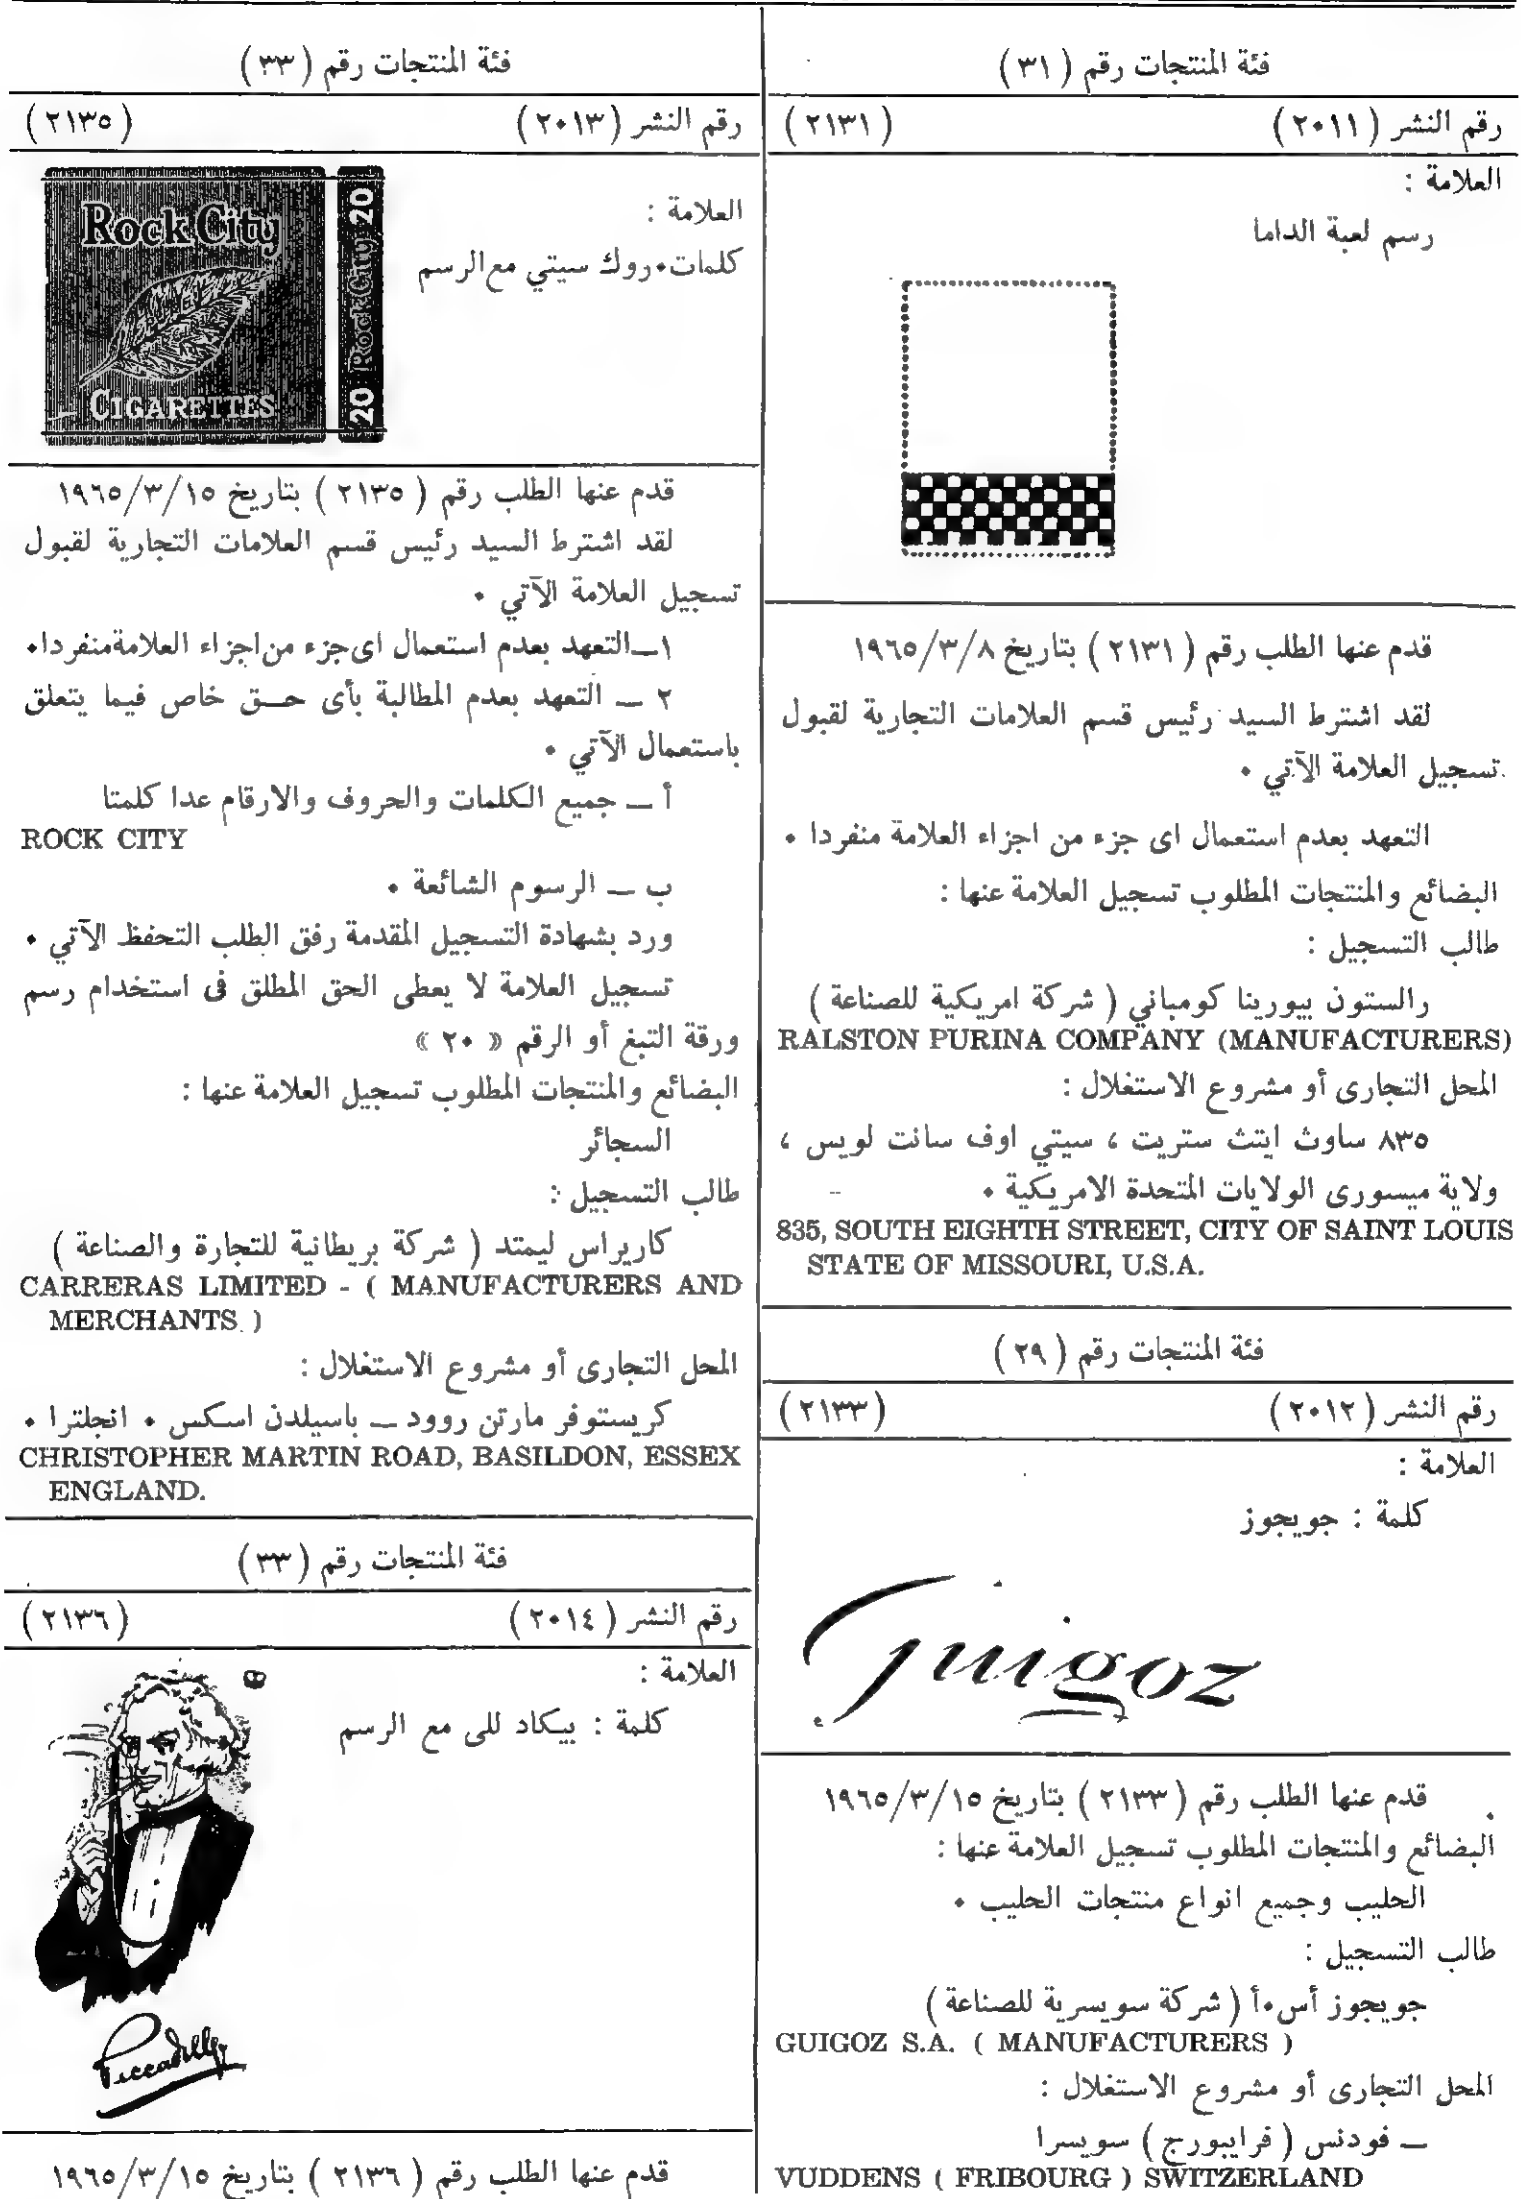 فئة المنتجات رقم ( ٣١ )
رقم النشر ( ٢٠١١ ) ( ٢١٣١ )
العلامة :
رسم لعبة الداما
قدم عنها الطلب رقم ( ٢١٣١ ) بتاريخ ١٩٦٥/٣/٨
لقد اشترط السيد رئيس قسم العلامات التجارية لقبول
تسجيل العلامة الآتي ٠
التعهد بعدم استعمال اى جزء من اجزاء العلامة منفردا ٠
البضائع والمنتجات المطلوب تسجيل العلامة عنها :
طالب التسجيل :
رالستون بيورينا كومباني ( شركة امريكية للصناعة )
RALSTON PURINA COMPANY (MANUFACTURERS)
المحل التجارى أو مشروع الاستغلال :
٨٣٥ ساوث ايتث ستريت ، سيتي اوف سانت لويس ،
ولاية ميسورى الولايات المتحدة الامريكية ٠
835, SOUTH EIGHTH STREET, CITY OF SAINT LOUIS
STATE OF MISSOURI, U.S.A.
فئة المنتجات رقم ( ٢٩ )
رقم النشر ( ٢٠١٢ ) ( ٢١٣٣ )
العلامة :
كلمة : جويجوز
Guigoz
قدم عنها الطلب رقم ( ٢١٣٣ ) بتاريخ ١٩٦٥/٣/١٥
البضائع والمنتجات المطلوب تسجيل العلامة عنها :
الحليب وجميع انواع منتجات الحليب ٠
طالب التسجيل :
جويجوز أس٠أ ( شركة سويسرية للصناعة )
GUIGOZ S.A. ( MANUFACTURERS )
المحل التجارى أو مشروع الاستغلال :
ـ فودنس ( فرايبورج ) سويسرا
VUDDENS ( FRIBOURG ) SWITZERLAND
فئة المنتجات رقم ( ٣٣ )
رقم النشر ( ٢٠١٣ ) ( ٢١٣٥ )
العلامة :
كلمات٠روك سيتي مع الرسم
Rock City
CIGARETTES
20 Rock City 20
قدم عنها الطلب رقم ( ٢١٣٥ ) بتاريخ ١٩٦٥/٣/١٥
لقد اشترط السيد رئيس قسم العلامات التجارية لقبول
تسجيل العلامة الآتي ٠
١ــالتعهد بعدم استعمال اى جزء من اجزاء العلامة منفردا٠
٢ ــ التعهد بعدم المطالبة بأى حــق خاص فيما يتعلق
باستعمال الآتي ٠
أ ــ جميع الكلمات والحروف والارقام عدا كلمتا
ROCK CITY
ب ــ الرسوم الشائعة ٠
ورد بشهادة التسجيل المقدمة رفق الطلب التحفظ الآتي ٠
تسجيل العلامة لا يعطى الحق المطلق فى استخدام رسم
ورقة التبغ أو الرقم « ٢٠ »
البضائع والمنتجات المطلوب تسجيل العلامة عنها :
السجائر
طالب التسجيل :
كاريراس ليمتد ( شركة بريطانية للتجارة والصناعة )
CARRERAS LIMITED - ( MANUFACTURERS AND
MERCHANTS )
المحل التجارى أو مشروع الاستغلال :
كريستوفر مارتن روود ــ باسيلدن اسكس ٠ انجلترا ٠
CHRISTOPHER MARTIN ROAD, BASILDON, ESSEX
ENGLAND.
فئة المنتجات رقم ( ٣٣ )
رقم النشر ( ٢٠١٤ ) ( ٢١٣٦ )
العلامة :
كلمة : بيكاد للى مع الرسم
Piccadilly
قدم عنها الطلب رقم ( ٢١٣٦ ) بتاريخ ١٩٦٥/٣/١٥